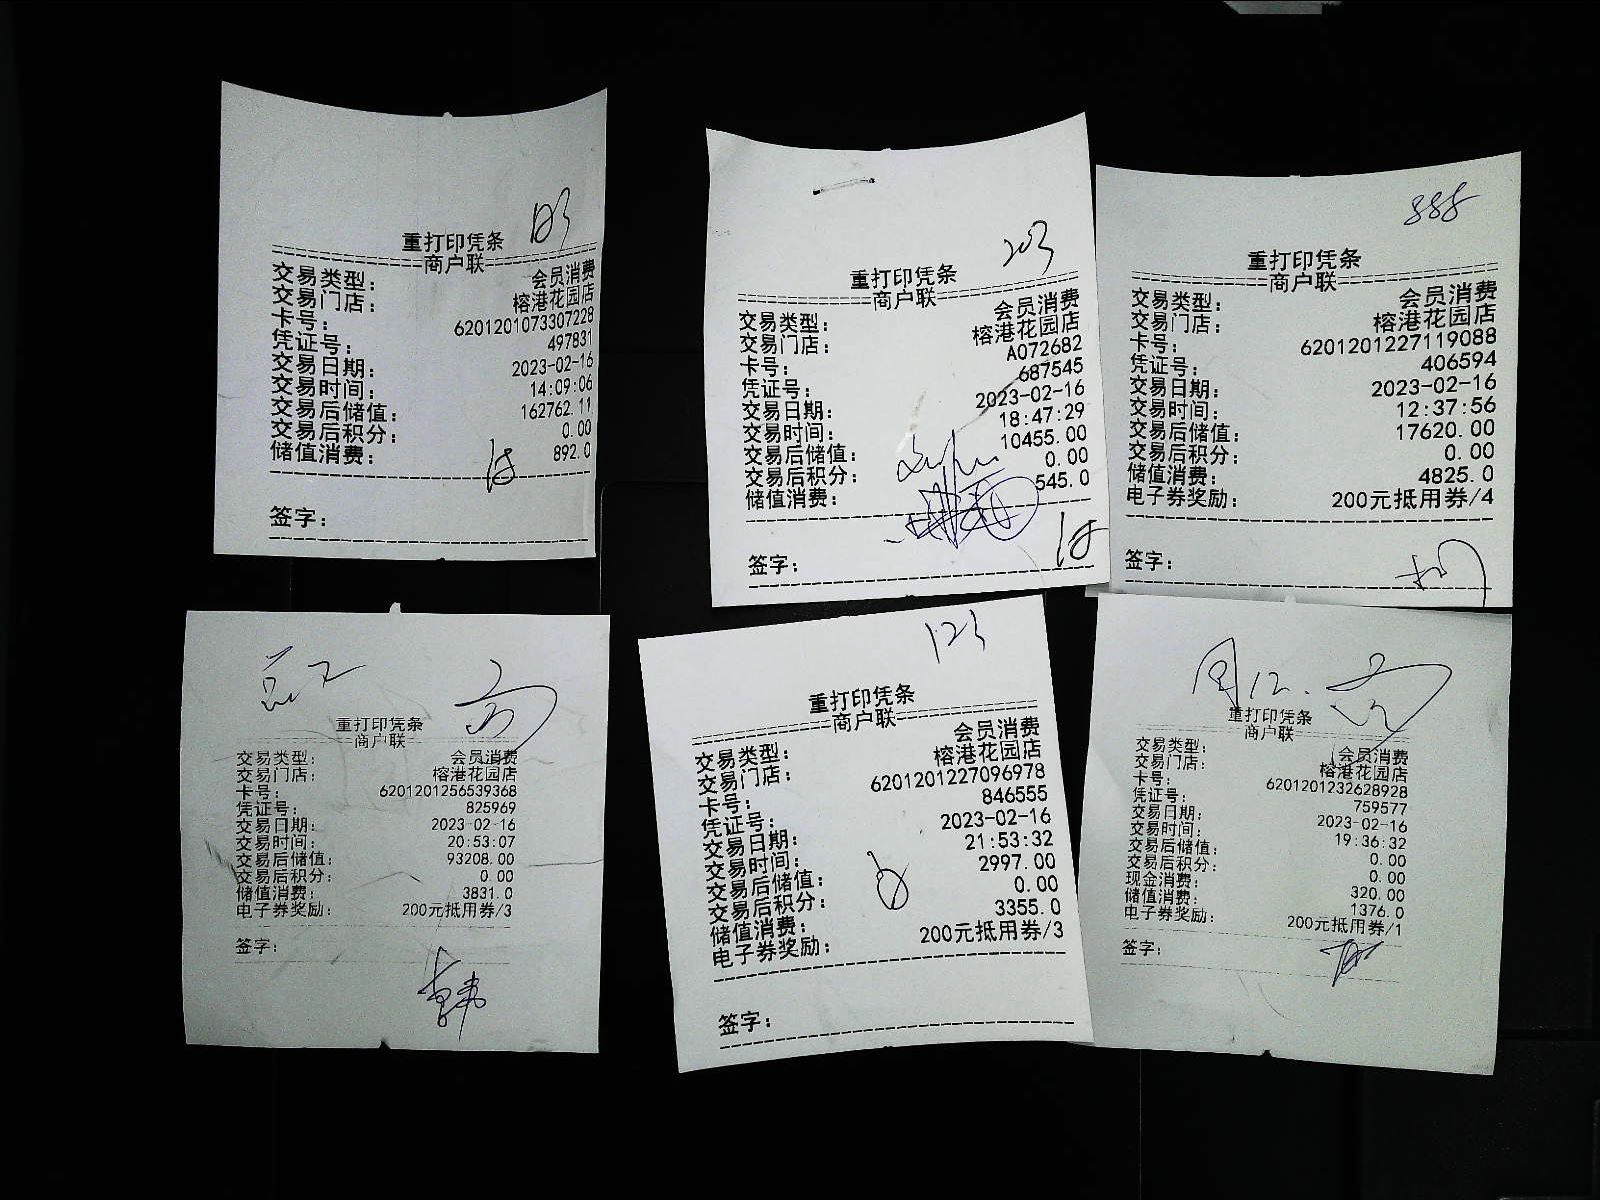 183
重打印凭条
商户联
交易类型: 会员消费
交易门店: 榕港花园店
卡号: 6201201073307228
凭证号: 497831
交易日期: 2023-02-16
交易时间: 14:09:06
交易后储值: 162762.11
交易后积分: 0.00
储值消费: 892.0
签字:
203
重打印凭条
商户联
交易类型: 会员消费
交易门店: 榕港花园店
卡号: A072682
凭证号: 687545
交易日期: 2023-02-16
交易时间: 18:47:29
交易后储值: 10455.00
交易后积分: 0.00
储值消费: 545.0
签字:
888
重打印凭条
商户联
交易类型: 会员消费
交易门店: 榕港花园店
卡号: 6201201227119088
凭证号: 406594
交易日期: 2023-02-16
交易时间: 12:37:56
交易后储值: 17620.00
交易后积分: 0.00
储值消费: 4825.0
电子券奖励: 200元抵用券/4
签字:
重打印凭条
商户联
交易类型: 会员消费
交易门店: 榕港花园店
卡号: 6201201256539368
凭证号: 825969
交易日期: 2023-02-16
交易时间: 20:53:07
交易后储值: 93208.00
交易后积分: 0.00
储值消费: 3831.0
电子券奖励: 200元抵用券/3
签字:
韩
123
重打印凭条
商户联
交易类型: 会员消费
交易门店: 榕港花园店
卡号: 6201201227096978
凭证号: 846555
交易日期: 2023-02-16
交易时间: 21:53:32
交易后储值: 2997.00
交易后积分: 0.00
储值消费: 3355.0
电子券奖励: 200元抵用券/3
签字:
重打印凭条
商户联
交易类型: 会员消费
交易门店: 榕港花园店
卡号: 6201201232628928
凭证号: 759577
交易日期: 2023-02-16
交易时间: 19:36:32
交易后储值: 0.00
交易后积分: 0.00
现金消费: 320.00
储值消费: 1376.0
电子券奖励: 200元抵用券/1
签字: